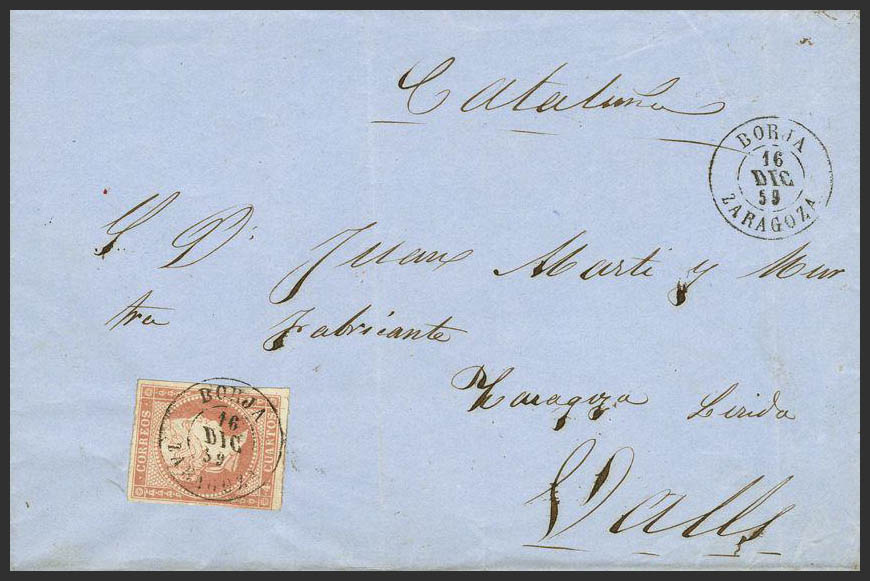 Cataluña
BORJA
16
DIC
59
ZARAGOZA
S. D.n Juan Marti y Mur
tra Fabricante
Zaragoza Lerida
Valls
CORREOS
4 CUARTOS
BORJA
16
DIC
59
ZARAGOZA